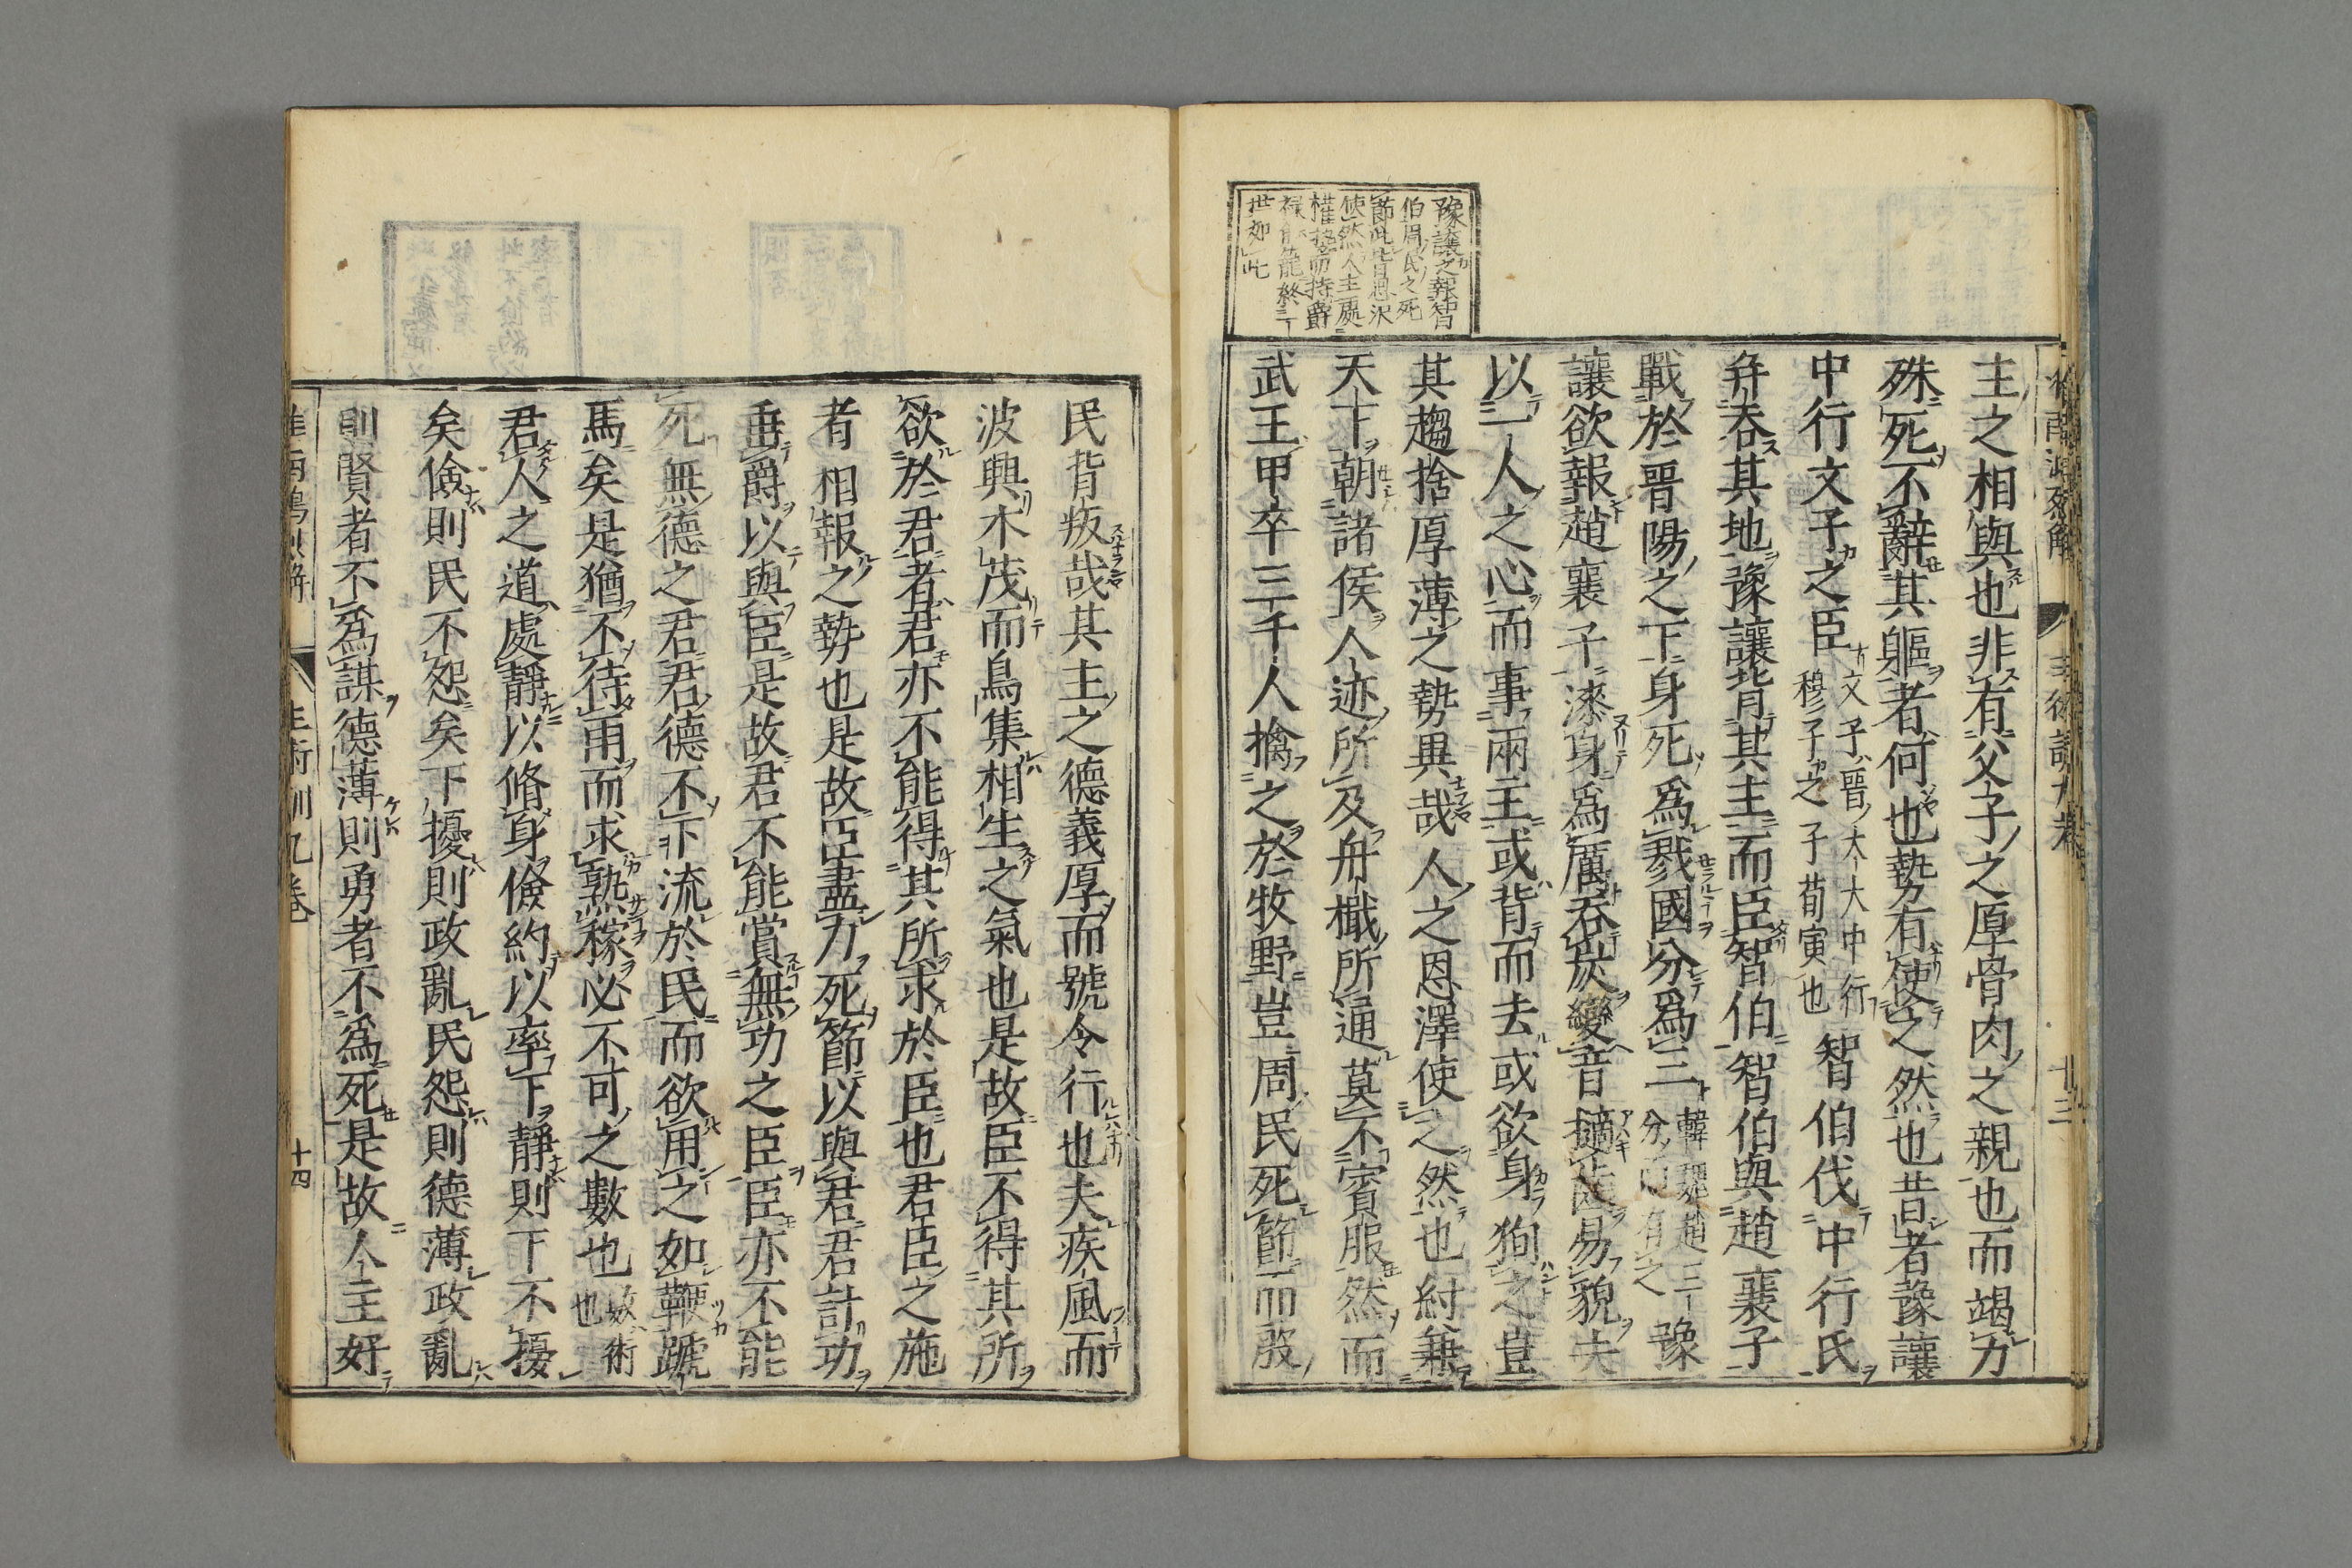 主之相與也非有父子之厚骨肉之親也而竭力
殊死不辭其軀者何也勢有使之然也昔者豫讓
中行文子之臣
文子晉大大中行
穆子之子荀寅也
智伯伐中行氏
弁吞其地豫讓背其主而臣智伯智伯與趙襄子
戰於晋陽之下身死爲戮國分爲三
韓魏趙三
分而有之
豫
讓欲報趙襄子漆身爲厲吞炭變音擿齒易貌夫
以一人之心而事兩主或背而去或欲身狥之豈
其趨捨厚薄之勢異哉人之恩澤使之然也紂兼
天下朝諸侯人迹所及舟檝所通莫不賓服然而
武王甲卒三千人擒之於牧野豈周民死節而殷
豫讓之報智
伯周民之死
節此皆恩沢
使然人主處
權勢而持爵
禄
世如此
十三
民背叛哉其主之德義厚而號令行也夫疾風而
波興木茂而鳥集相生之氣也是故臣不得其所
欲於君者君亦不能得其所求於臣也君臣之施
者相報之勢也是故臣盡力死節以與君君計功
垂爵以與臣是故君不能賞無功之臣臣亦不能
死無德之君君德不下流於民而欲用之如鞭蹏
馬矣是猶不待雨而求熟稼必不可之數也
數術
也
君人之道處靜以脩身儉約以率下靜則下不擾
矣儉則民不怨矣下擾則政亂民怨則德薄政亂
則賢者不爲謀德薄則勇者不爲死是故人主好
主術訓九卷
十四